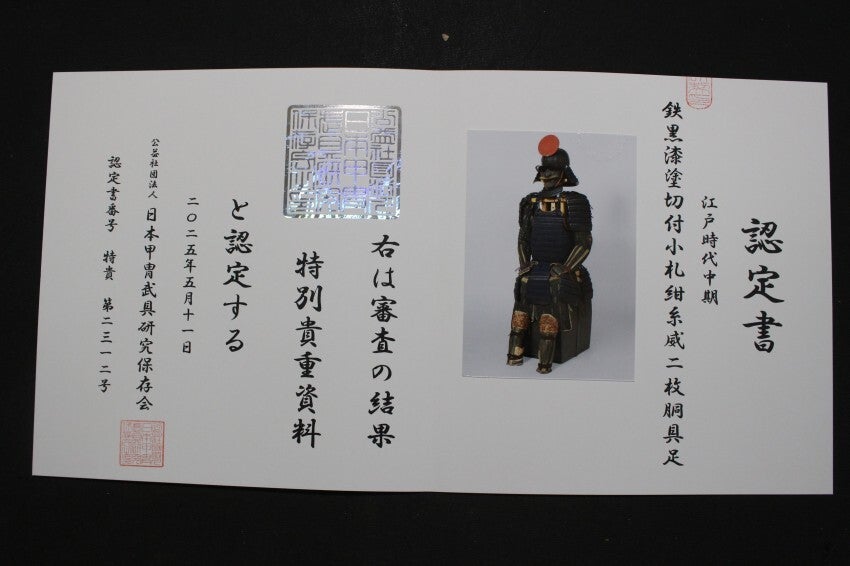 認定書
鉄黒漆塗切付小札紺糸威二枚胴具足
江戸時代中期
右は審査の結果
特別貴重資料
と認定する
二〇二五年五月十一日
公益社団法人 日本甲冑武具研究保存会
認定書番号 特貴 第二三一二号